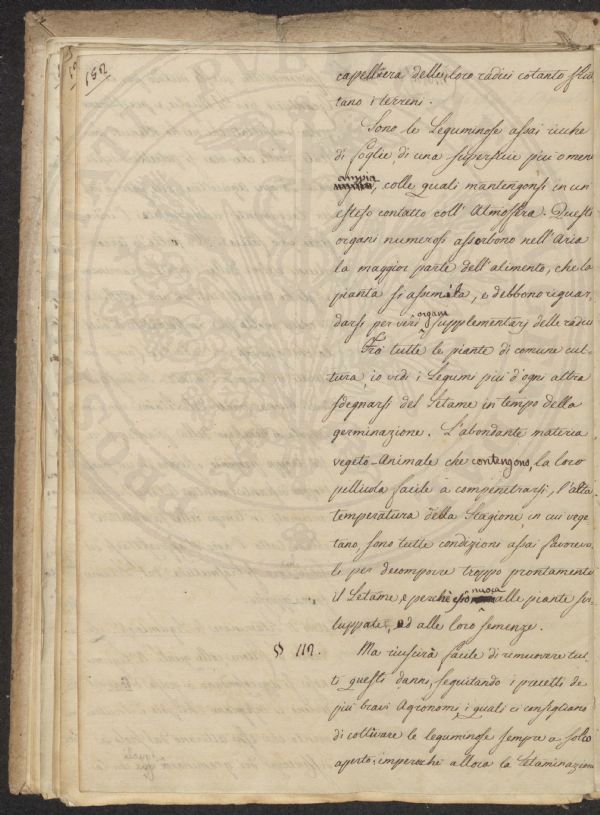 152
capellizera delle loro radici cotanto sfrut
tano i terreni.
Sono le Leguminose assai ricche
di foglie, di una superficie più o men
ampia, colle quali mantengonsi in un
esteso contatto coll' Atmosfera. Questi
organi numerosi assorbono nell' Aria
la maggior parte dell' alimento, che la
pianta si assimila, e debbono riguar
darsi per veri organi supplementarj delle radici
Fra tutte le piante di comune cul
tura, io vidi i Legumi più d'ogni altra
sdegnarsi del Letame in tempo della
germinazione. L'abondante materia
vegeto-Animale che contengono, la loro
pellicola facile a compenetrarsi, l'alta
temperatura della Stagione, in cui vege
tano, sono tutte condizioni assai favorevo
li per decomporre troppo prontamente
il Letame, e perchè nuoca alle piante svi
luppate, ed alle loro semenze.
§ 112. Ma riuscirà facile di rimuovere tut
ti questi danni, seguitando i precetti de
più bravi Agronomi, i quali ci consigliano
di coltivare le leguminose sempre a solco
aperto; imperochè allora la letaminazione